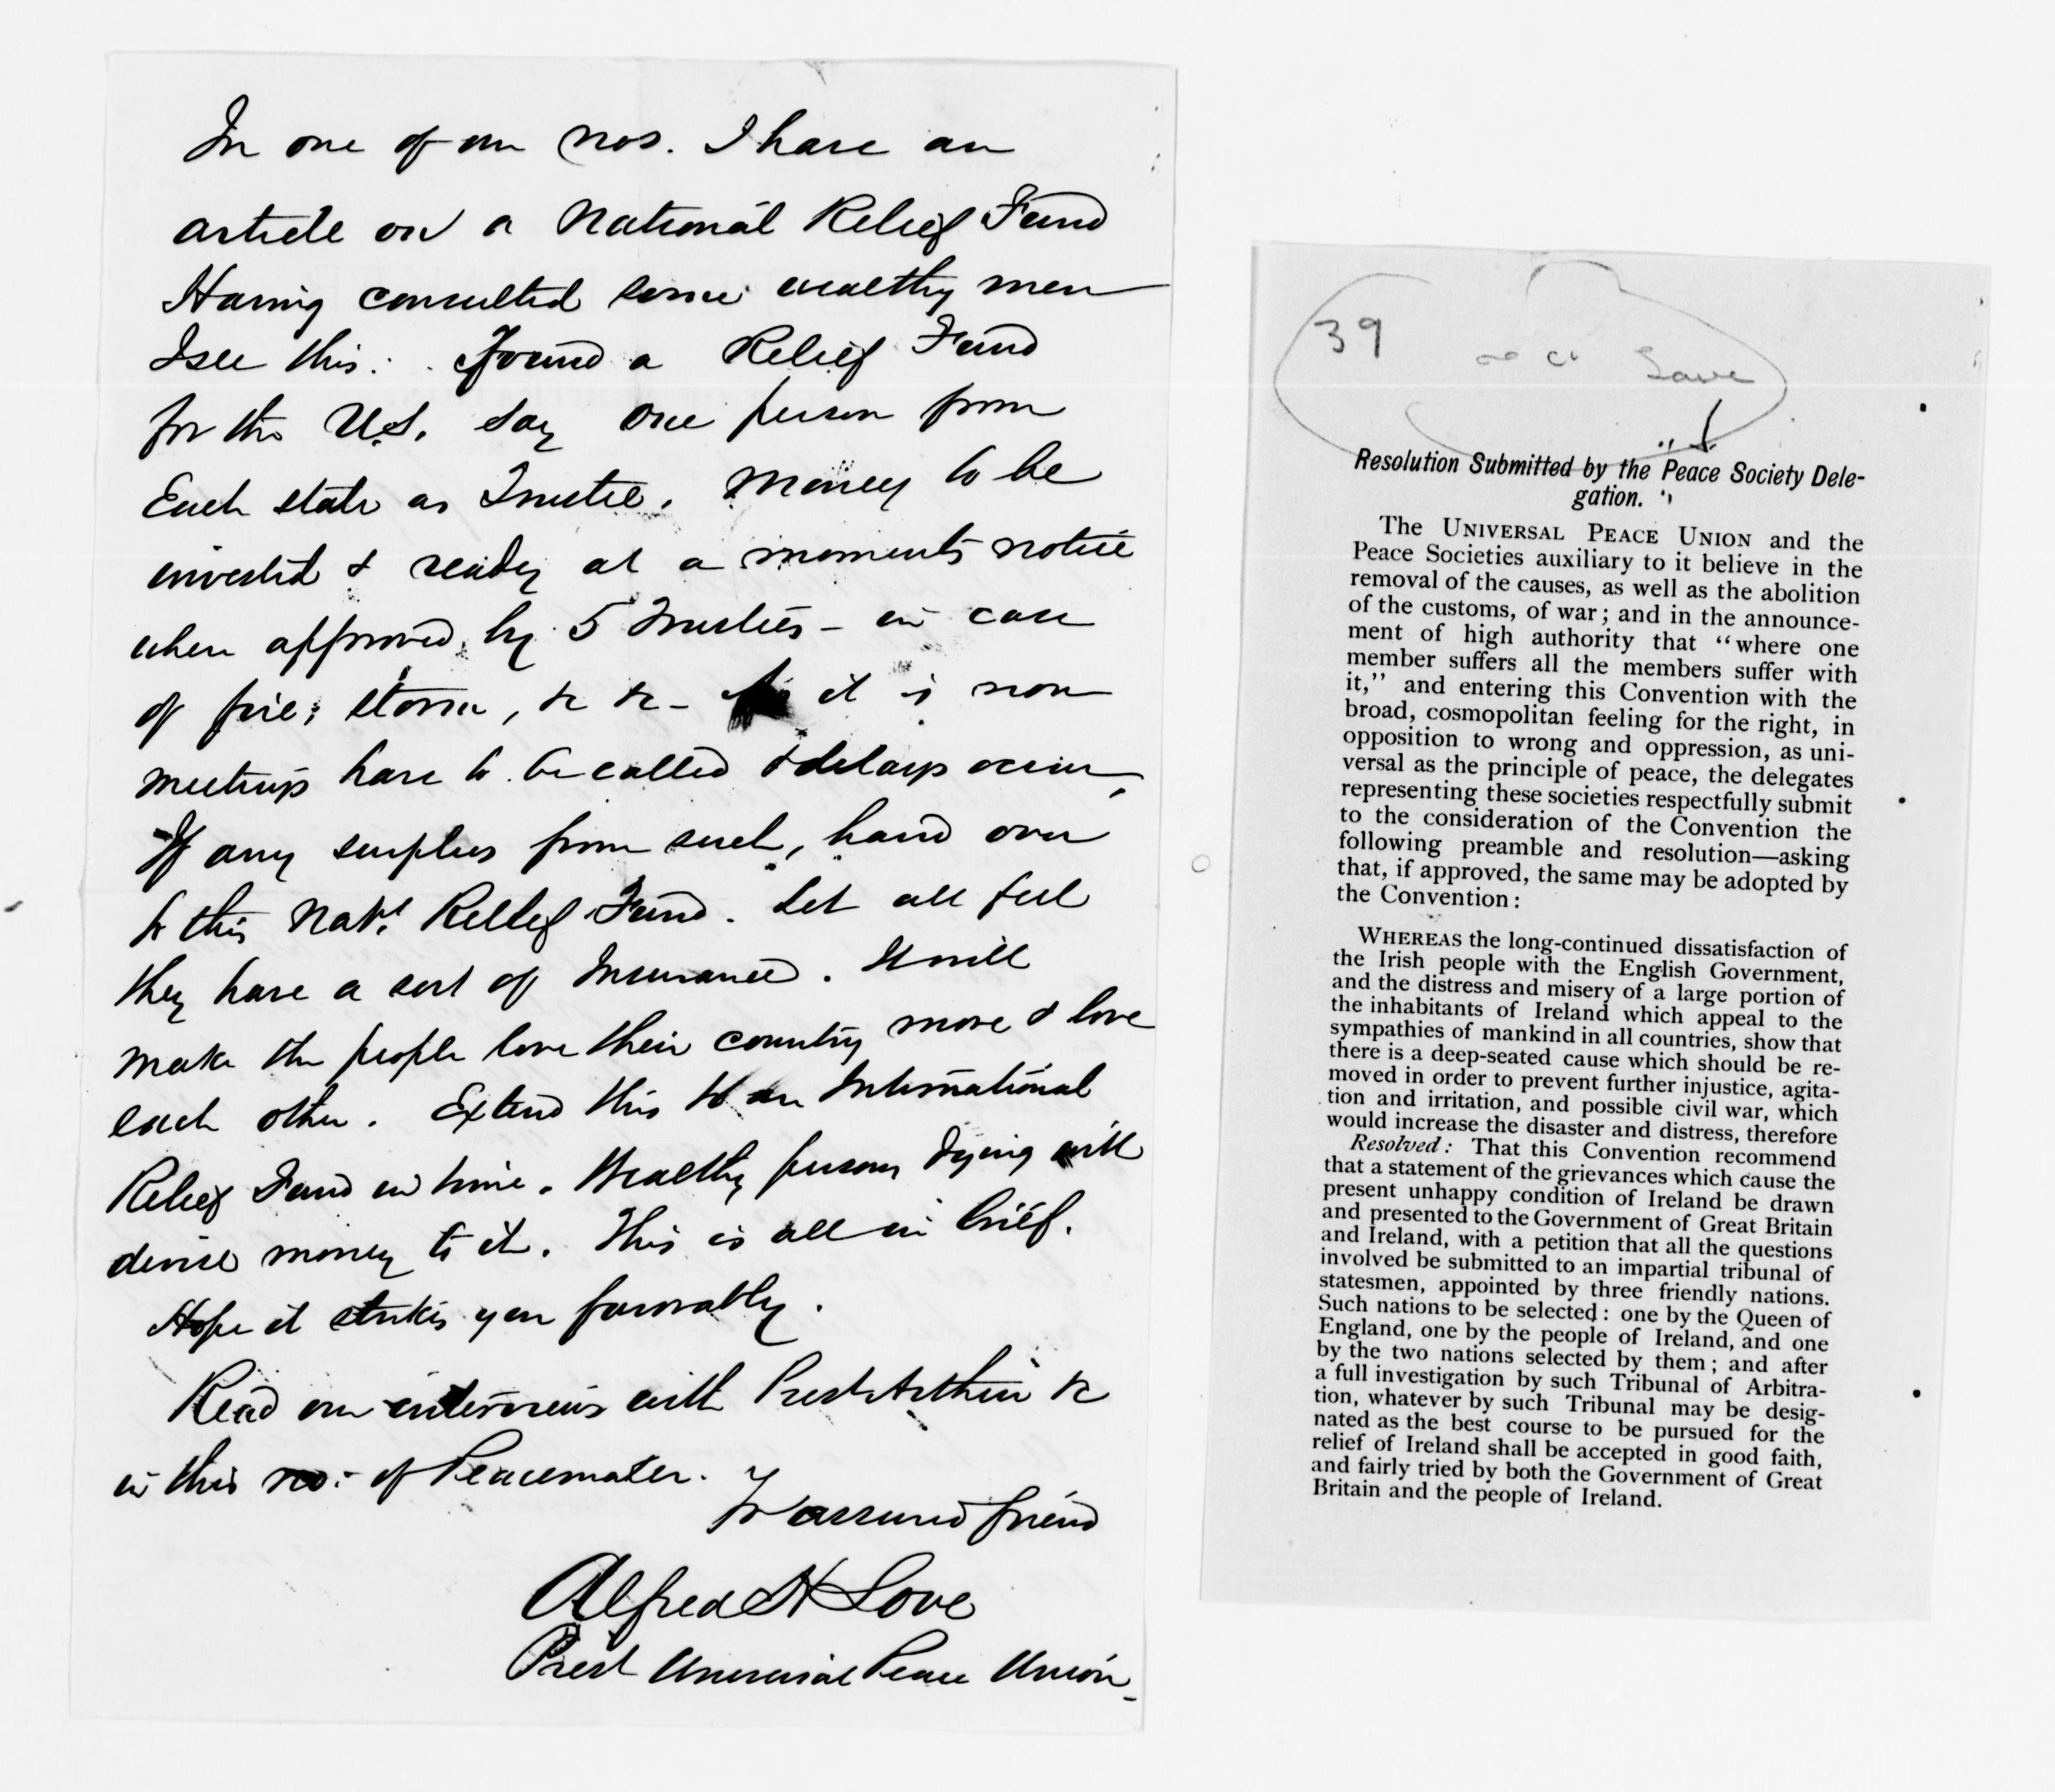 In one of our nos. I have an
article on a National Relief Fund
Having consulted some wealthy men
I see this: Found a Relief Fund
for the U.S. say one person from
Each state as Trustee. Money to be
invested & ready at a moments notice
when approved by 5 Trustees - in case
of fire, storm, &c &c - As it is now
meetings have to be called & delays occur,
If any surplus from such, hand over
to this Natl. Relief Fund. Let all feel
they have a sort of Insurance. It will
make the people love their country more & love
each other. Extend this to an International
Relief Fund in time. Wealthy persons dying will
devise money to it. This is all in brief.
Hope it strikes you favorably.
Read our interviews with Prest Arthur &c
in this no. of Peacemaker.
Yr assured friend
Alfred H Love
Prest Universal Peace Union
39
Love
Resolution Submitted by the "Peace Society Dele-
gation. "
The UNIVERSAL PEACE UNION and the
Peace Societies auxiliary to it believe in the
removal of the causes, as well as the abolition
of the customs, of war; and in the announce-
ment of high authority that "where one
member suffers all the members suffer with
it," and entering this Convention with the
broad, cosmopolitan feeling for the right, in
opposition to wrong and oppression, as uni-
versal as the principle of peace, the delegates
representing these societies respectfully submit
to the consideration of the Convention the
following preamble and resolution—asking
that, if approved, the same may be adopted by
the Convention:
WHEREAS the long-continued dissatisfaction of
the Irish people with the English Government,
and the distress and misery of a large portion of
the inhabitants of Ireland which appeal to the
sympathies of mankind in all countries, show that
there is a deep-seated cause which should be re-
moved in order to prevent further injustice, agita-
tion and irritation, and possible civil war, which
would increase the disaster and distress, therefore
Resolved: That this Convention recommend
that a statement of the grievances which cause the
present unhappy condition of Ireland be drawn
and presented to the Government of Great Britain
and Ireland, with a petition that all the questions
involved be submitted to an impartial tribunal of
statesmen, appointed by three friendly nations.
Such nations to be selected: one by the Queen of
England, one by the people of Ireland, and one
by the two nations selected by them; and after
a full investigation by such Tribunal of Arbitra-
tion, whatever by such Tribunal may be desig-
nated as the best course to be pursued for the
relief of Ireland shall be accepted in good faith,
and fairly tried by both the Government of Great
Britain and the people of Ireland.